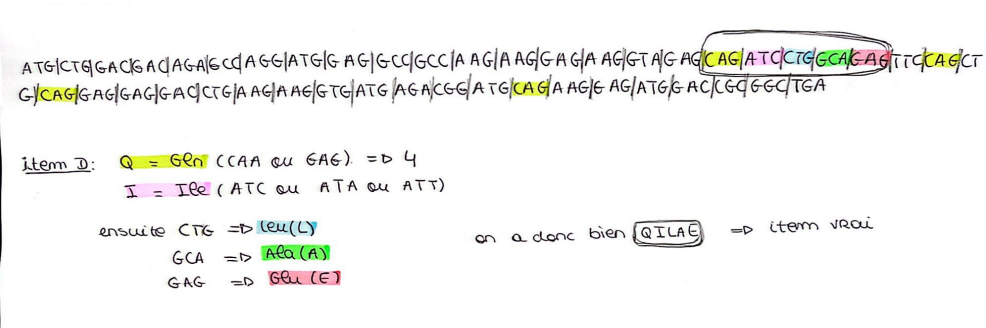 ATG|CTG|GAC|GAC|AGA|GCC|AGG|ATG|GAG|GCC|GCC|AAG|AAG|GAG|AAG|GTA|GAG|CAG|ATC|CTG|GCA|GAG|TTC|CAG|CT
G|CAG|GAG|GAG|GAC|CTG|AAG|AAG|GTG|ATG|AGA|CGG|ATG|CAG|AAG|GAG|ATG|GAC|CGC|GGC|TGA
item D: Q = Gln (CAA ou GAG). => 4
I = Ile (ATC ou ATA ou ATT)
ensuite CTG => Leu(L)
GCA => Ala(A)
GAG => Glu (E)
on a donc bien QILAE => item vrai